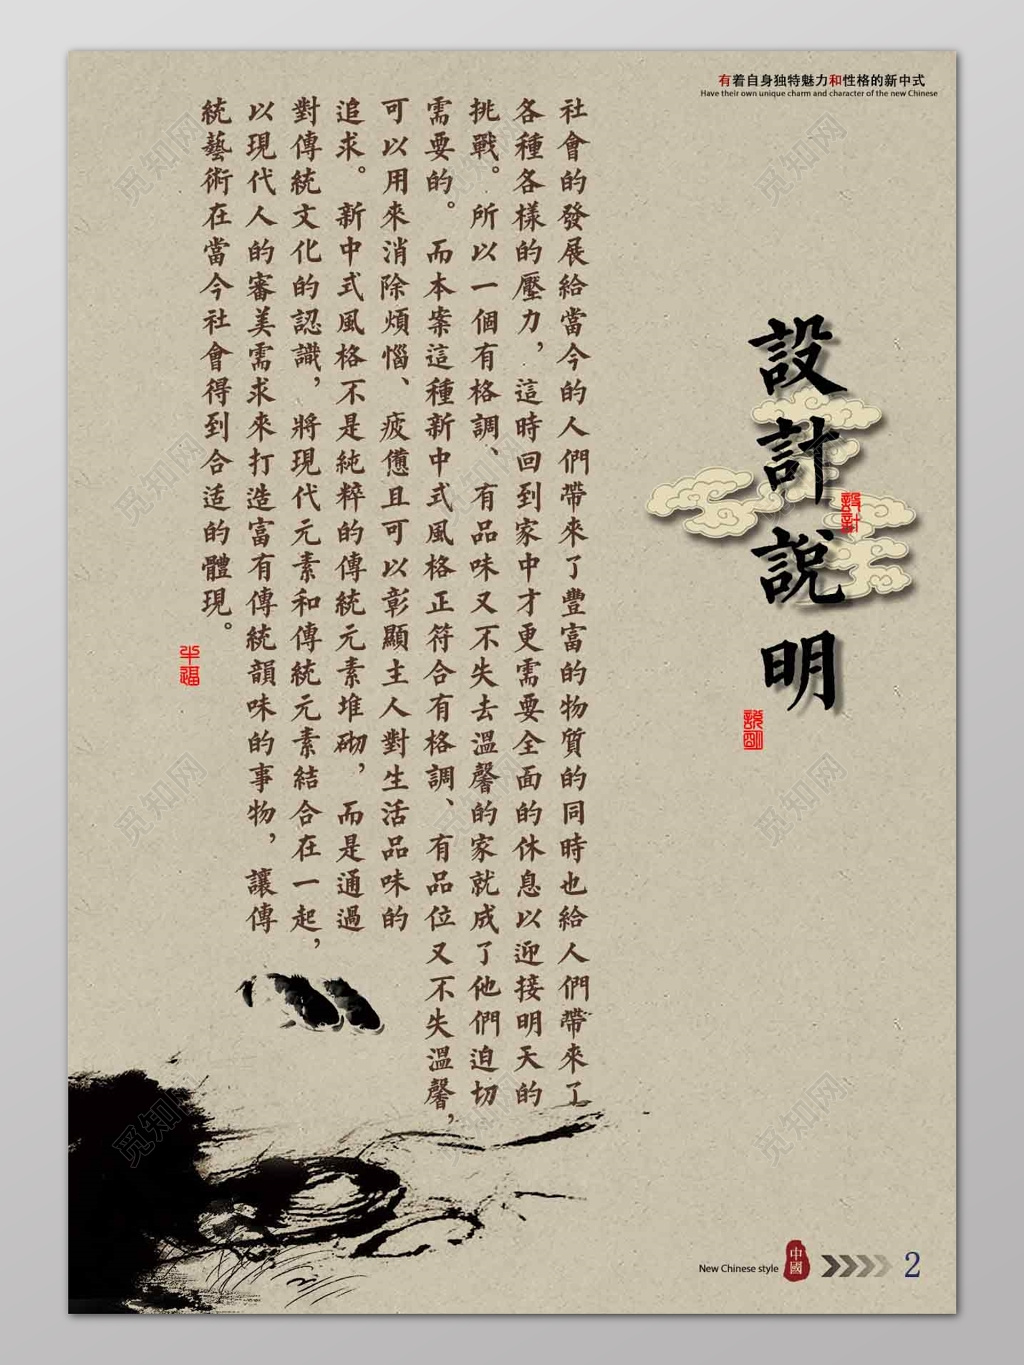 有着自身独特魅力和性格的新中式
Have their own unique charm and character of the new Chinese
設計說明
設計
說明
社會的發展給當今的人們帶來了豐富的物質的同時也給人們帶來了
各種各樣的壓力，這時回到家中才更需要全面的休息以迎接明天的
挑戰。所以一個有格調、有品味又不失去溫馨的家就成了他們迫切
需要的。而本案這種新中式風格正符合有格調、有品位又不失溫馨，
可以用來消除煩惱、疲憊且可以彰顯主人對生活品味的
追求。新中式風格不是純粹的傳統元素堆砌，而是通過
對傳統文化的認識，將現代元素和傳統元素結合在一起，
以現代人的審美需求來打造富有傳統韻味的事物，讓傳
統藝術在當今社會得到合适的體現。
半福
New Chinese style
中國
2
觅知网
觅知网
觅知网
觅知网
觅知网
觅知网
觅知网
觅知网